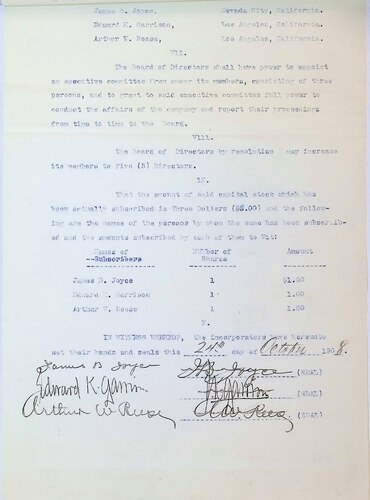 James B. Joyce, Nevada City, California.
Edward K. Garrison, Los Angeles, California.
Arthur W. Reese, Los Angeles, California.
VII.
The Board of Directors shall have power to appoint
an executive committee from among its members, consisting of three
persons, and to grant to said executive committee full power to
conduct the affairs of the company and report their proceedings
from time to time to the Board.
VIII.
The Board of Directors by resolution may increase
its members to five (5) Directors.
IX.
That the amount of said capital stock which has
been actually subscribed is Three Dollars ($3.00) and the follow-
ing are the names of the persons by whom the same has been subscrib-
ed and the amounts subscribed by each of them to Wit:
Names of Number of Amount
Subscribers Shares
James B. Joyce 1 $1.00
Edward K. Garrison 1 1.00
Arthur W. Reese 1 1.00
X.
IN WITNESS WHEREOF, the incorporators have hereunto
set their hands and seals this 24th day of October 1908.
James B Joyce J B Joyce (SEAL)
Edward K. Garrison E K Garrison (SEAL)
Arthur W Reese A W Reese (SEAL)